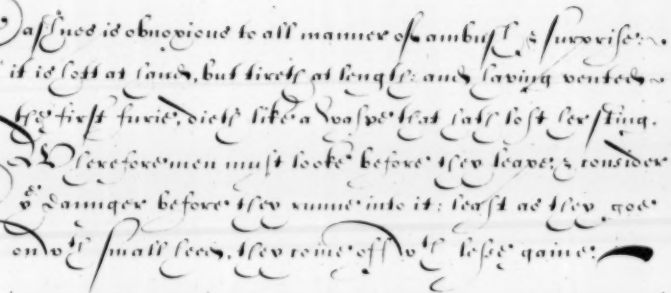 Rashnes is obnoxious to all manner of ambush & surprise:
it is hott at hand, but tireth at length: and having vented
the first furie, dieth like a Waspe that hath lost her sting.
Wherefore men must looke before they leape, & consider
yᵉ daunger before they runne into it: least as they goe
on wᵗʰ small heed, they come off wᵗʰ lesse gaine: